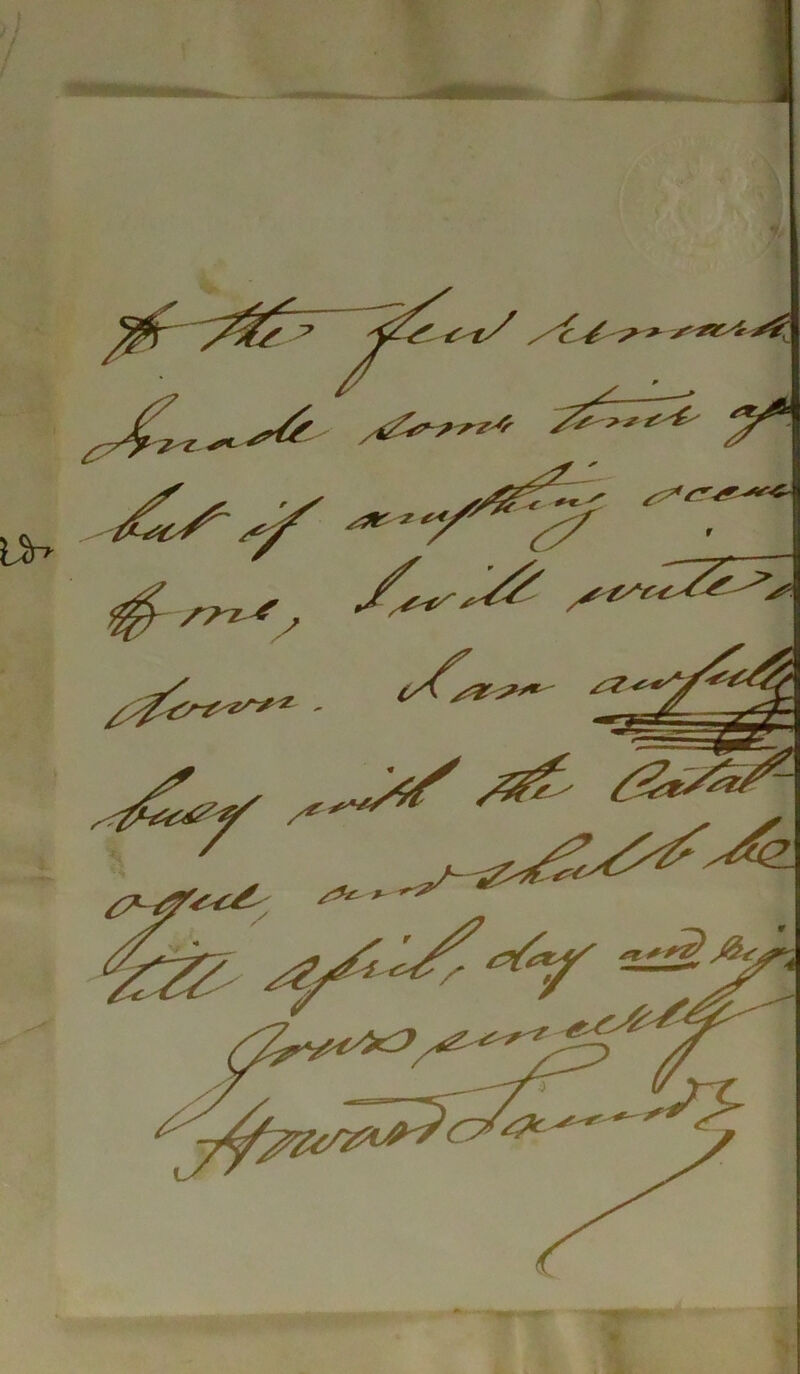 to the few remark
I made some time ag
but if anything occu
to me, I will write
down. I am awfully
busy with the Catal-
ogue, and shall be
till April, day and nig
Yours sincerely
Howard Saunders